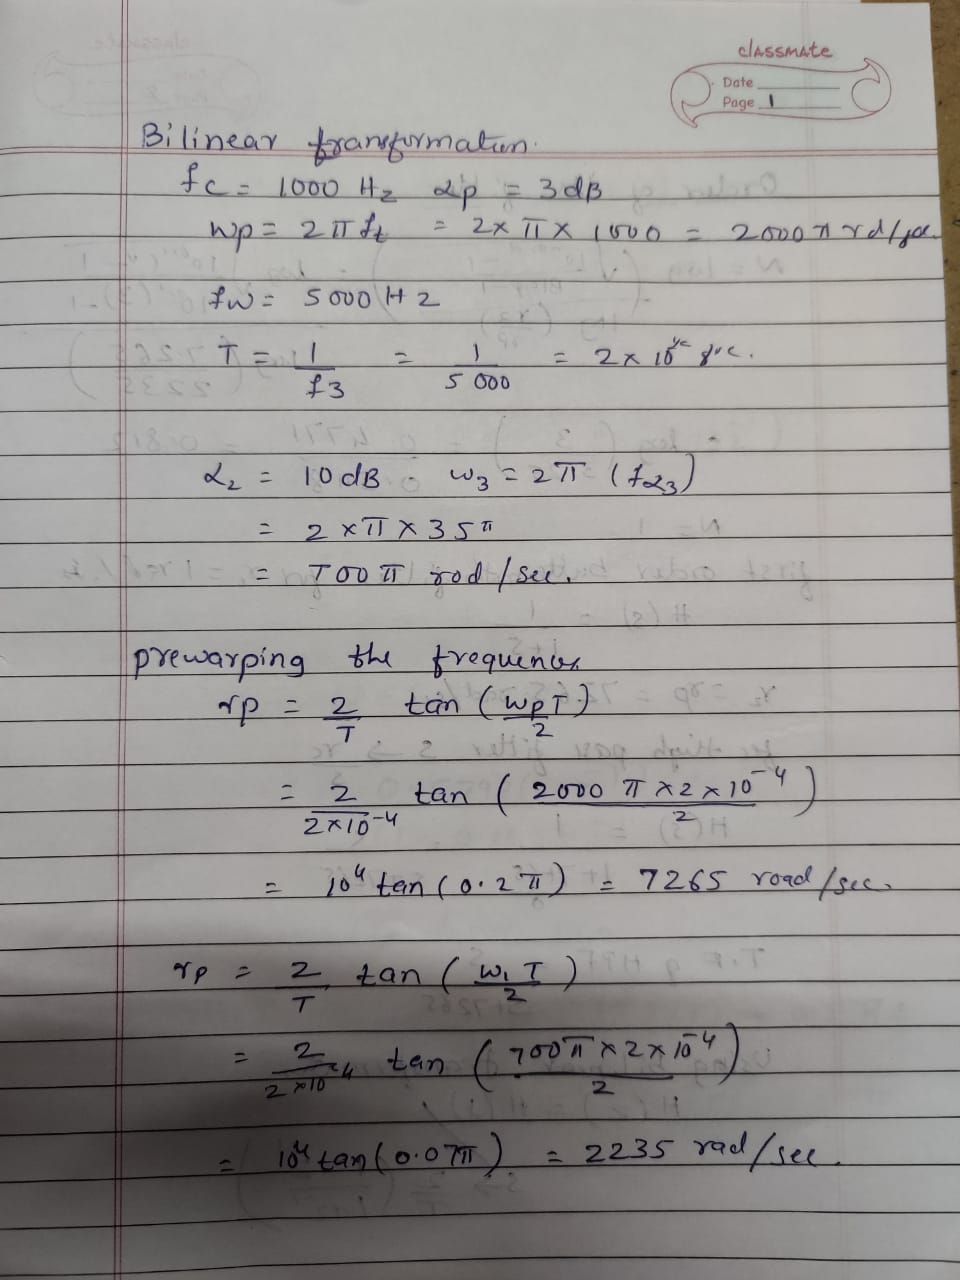 classmate
Date
Page 1
Bilinear transformation.
fc = 1000 Hz αp = 3dB
wp = 2πft = 2×π×1000 = 2000π rd/sec.
fw = 5000 Hz
T = 1/f3 = 1/5000 = 2×10 sec.
α2 = 10dB . w3 = 2π (fα3)
= 2×π×35π
= 700π rod/sec.
prewarping the frequences
rp = 2/T tan (wpT/2)
= 2/2×10⁻⁴ tan (2000π×2×10⁻⁴/2)
= 10⁴ tan (0.2π) = 7265 road/sec.
rp = 2/T tan (w1T/2)
= 2/2×10⁻⁴ tan (700π×2×10⁻⁴/2)
= 10⁴ tan(0.07π) = 2235 rad/sec.